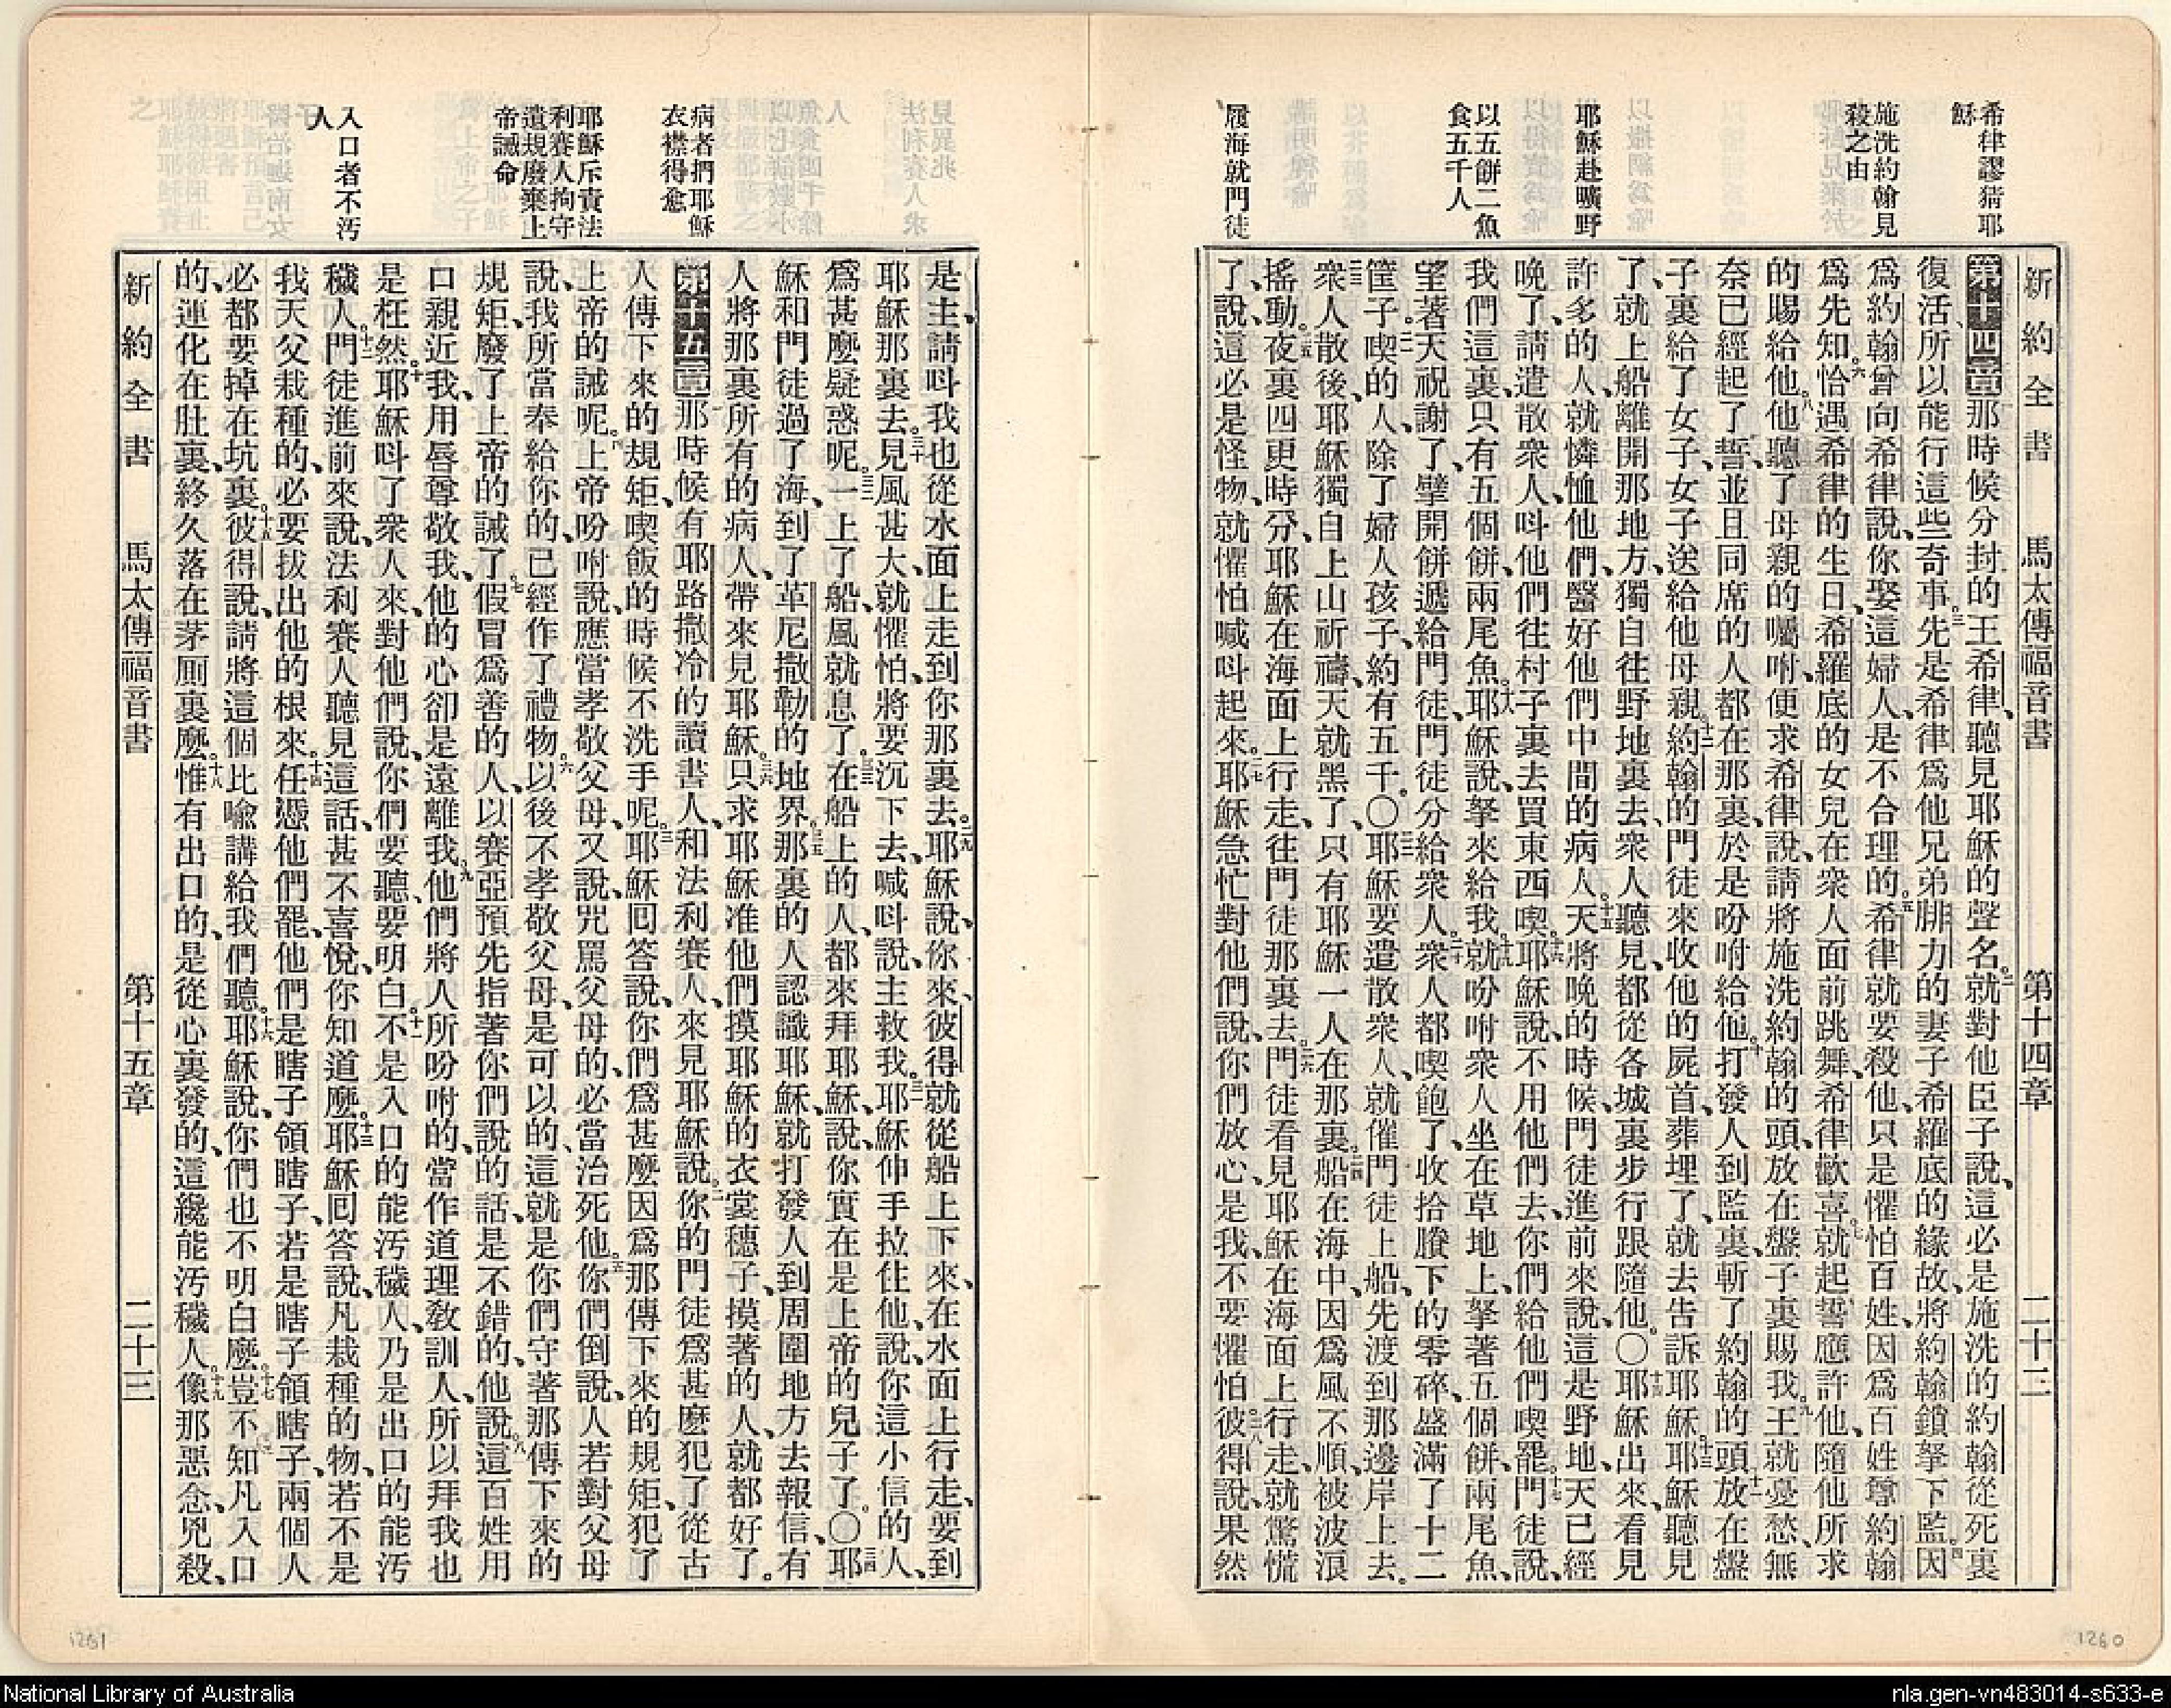 希律謬猜耶
穌
施洗約翰見
殺之由
耶穌赴曠野
以五餅二魚
食五千人
履海就門徒
新約全書 馬太傳福音書 第十四章 二十三
第十四章那時候分封的王希律、聽見耶穌的聲名。二就對他臣子說、這必是施洗的約翰從死裏
復活、所以能行這些奇事。三先是希律爲他兄弟腓力的妻子希羅底的緣故、將約翰鎖拏下監。四因
爲約翰曾向希律說、你娶這婦人、是不合理的。五希律就要殺他、只是懼怕百姓、因爲百姓尊約翰
爲先知。六恰遇希律的生日、希羅底的女兒在衆人面前跳舞、希律歡喜。七就起誓應許他、隨他所求
的賜給他。八他聽了母親的囑咐、便求希律說、請將施洗約翰的頭、放在盤子裏賜我。九王就憂愁、無
奈已經起了誓、並且同席的人都在那裏、於是吩咐給他。十打發人到監裏、斬了約翰的頭。十一放在盤
子裏給了女子、女子送給他母親。十二約翰的門徒來收他的屍首、葬埋了、就去告訴耶穌。十三耶穌聽見
了、就上船離開那地方、獨自往野地裏去、衆人聽見、都從各城裏步行跟隨他。〇十四耶穌出來、看見
許多的人、就憐恤他們、醫好他們中間的病人。十五天將晚的時候、門徒進前來說、這是野地、天已經
晚了、請遣散衆人、呌他們往村子裏去買東西喫。十六耶穌說、不用他們去、你們給他們喫罷。十七門徒說、
我們這裏、只有五個餅、兩尾魚。十八耶穌說、拏來給我。十九就吩咐衆人坐在草地上、拏著五個餅、兩尾魚、
望著天祝謝了、擘開餅遞給門徒、門徒分給衆人。二十衆人都喫飽了、收拾賸下的零碎、盛滿了十二
筐子。二一喫的人、除了婦人孩子、約有五千。〇二二耶穌要遣散衆人、就催門徒上船、先渡到那邊岸上去。
二三衆人散後、耶穌獨自上山祈禱、天就黑了、只有耶穌一人在那裏。二四船在海中、因爲風不順、被波浪
搖動。二五夜裏四更時分、耶穌在海面上行走、往門徒那裏去。二六門徒看見耶穌在海面上行走、就驚慌
了、說、這必是怪物、就懼怕喊呌起來。二七耶穌急忙對他們說、你們放心、是我、不要懼怕。二八彼得說、果然
病者捫耶穌
衣襟得愈
耶穌斥責法
利賽人拘守
遺規廢棄上
帝誡命
入口者不汚
人
是主、請呌我也從水面上走到你那裏去。二九耶穌說、你來、彼得就從船上下來、在水面上行走、要到
耶穌那裏去。三十見風甚大、就懼怕、將要沉下去、喊呌說、主救我。三一耶穌伸手拉住他、說、你這小信的人、
爲甚麼疑惑呢。三二一上了船、風就息了。三三在船上的人、都來拜耶穌、說、你實在是上帝的兒子了。〇三四耶
穌和門徒過了海、到了革尼撒勒的地界。三五那裏的人認識耶穌、就打發人到周圍地方去報信、有
人將那裏所有的病人、帶來見耶穌。三六只求耶穌准他們摸耶穌的衣裳穗子、摸著的人、就都好了。
第十五章那時候有耶路撒冷的讀書人、和法利賽人、來見耶穌說。二你的門徒爲甚麼犯了從古
人傳下來的規矩、喫飯的時候不洗手呢。三耶穌回答說、你們爲甚麼因爲那傳下來的規矩、犯了
上帝的誡呢。四上帝吩咐說、應當孝敬父母、又說、咒罵父母的、必當治死他。五你們倒說、人若對父母
說、我所當奉給你的、已經作了禮物。六以後不孝敬父母、是可以的、這就是你們守著那傳下來的
規矩、廢了上帝的誡了。七假冒爲善的人、以賽亞預先指著你們說的話、是不錯的、他說。八這百姓用
口親近我、用唇尊敬我、他的心卻是遠離我。九他們將人所吩咐的、當作道理敎訓人、所以拜我也
是枉然。十耶穌呌了衆人來、對他們說、你們要聽、要明白。十一不是入口的能汚穢人、乃是出口的能汚
穢人。十二門徒進前來說、法利賽人聽見這話、甚不喜悅、你知道麼。十三耶穌回答說、凡栽種的物、若不是
我天父栽種的、必要拔出他的根來。十四任憑他們罷、他們是瞎子領瞎子、若是瞎子領瞎子、兩個人
必都要掉在坑裏。十五彼得說、請將這個比喩講給我們聽。十六耶穌說、你們也不明白麼。十七豈不知凡入口
的、運化在肚裏、終久落在茅厠裏麼。十八惟有出口的、是從心裏發的、這纔能汚穢人。十九像那惡念、兇殺、
新約全書 馬太傳福音書 第十五章 二十三
1261
1260
National Library of Australia
nla.gen-vn483014-s633-e